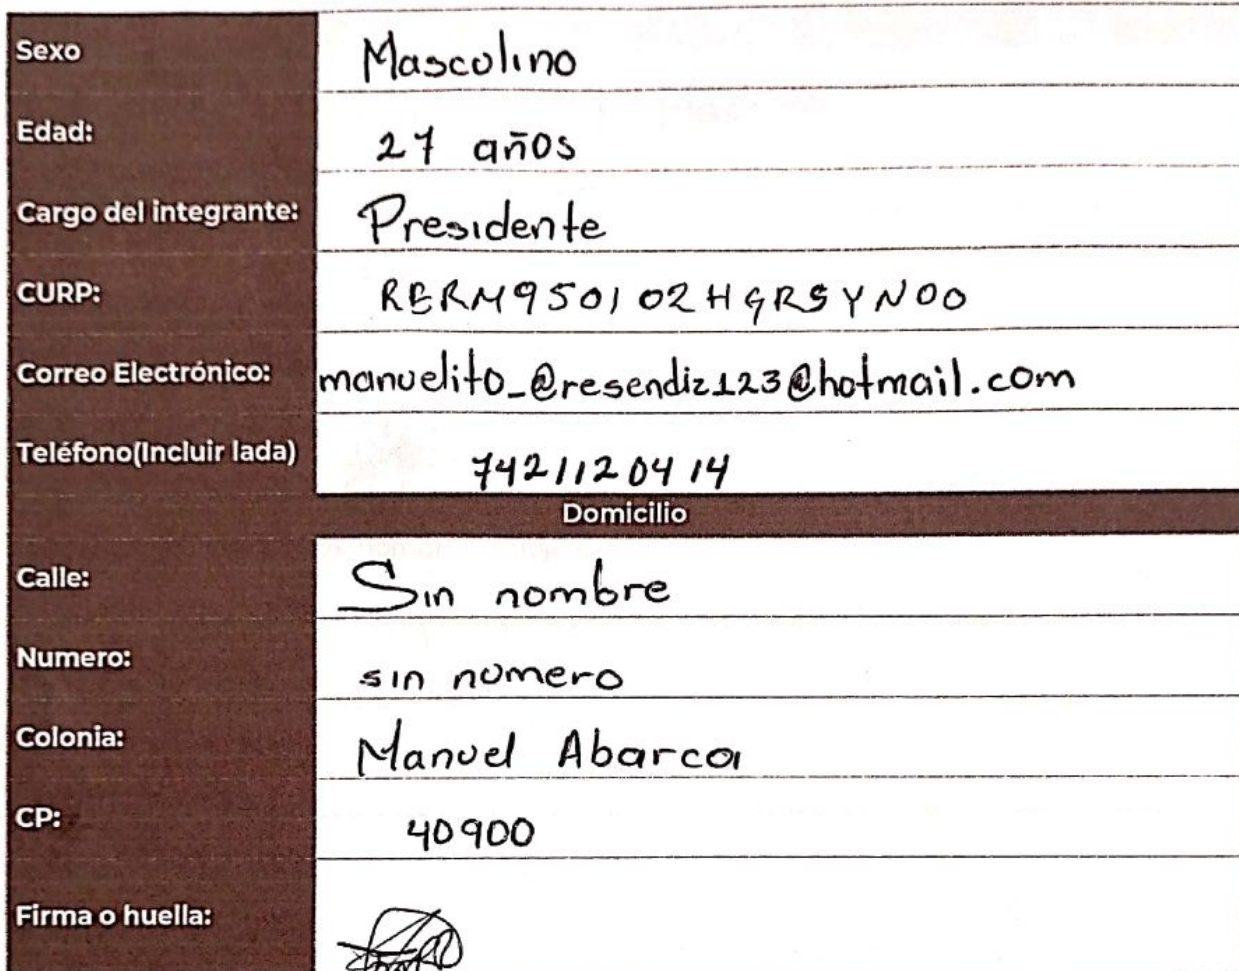 Sexo Masculino
Edad: 27 años
Cargo del integrante: Presidente
CURP: RERM950102HGRSYN00
Correo Electrónico: manuelito_@resendiz123@hotmail.com
Teléfono(Incluir lada) 7421120414
Domicilio
Calle: Sin nombre
Numero: sin numero
Colonia: Manuel Abarca
CP: 40900
Firma o huella: